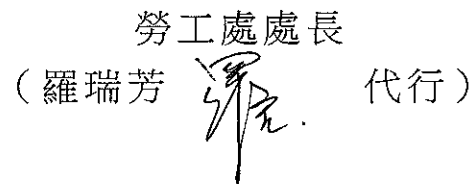 勞工處處長
（羅瑞芳 代行）